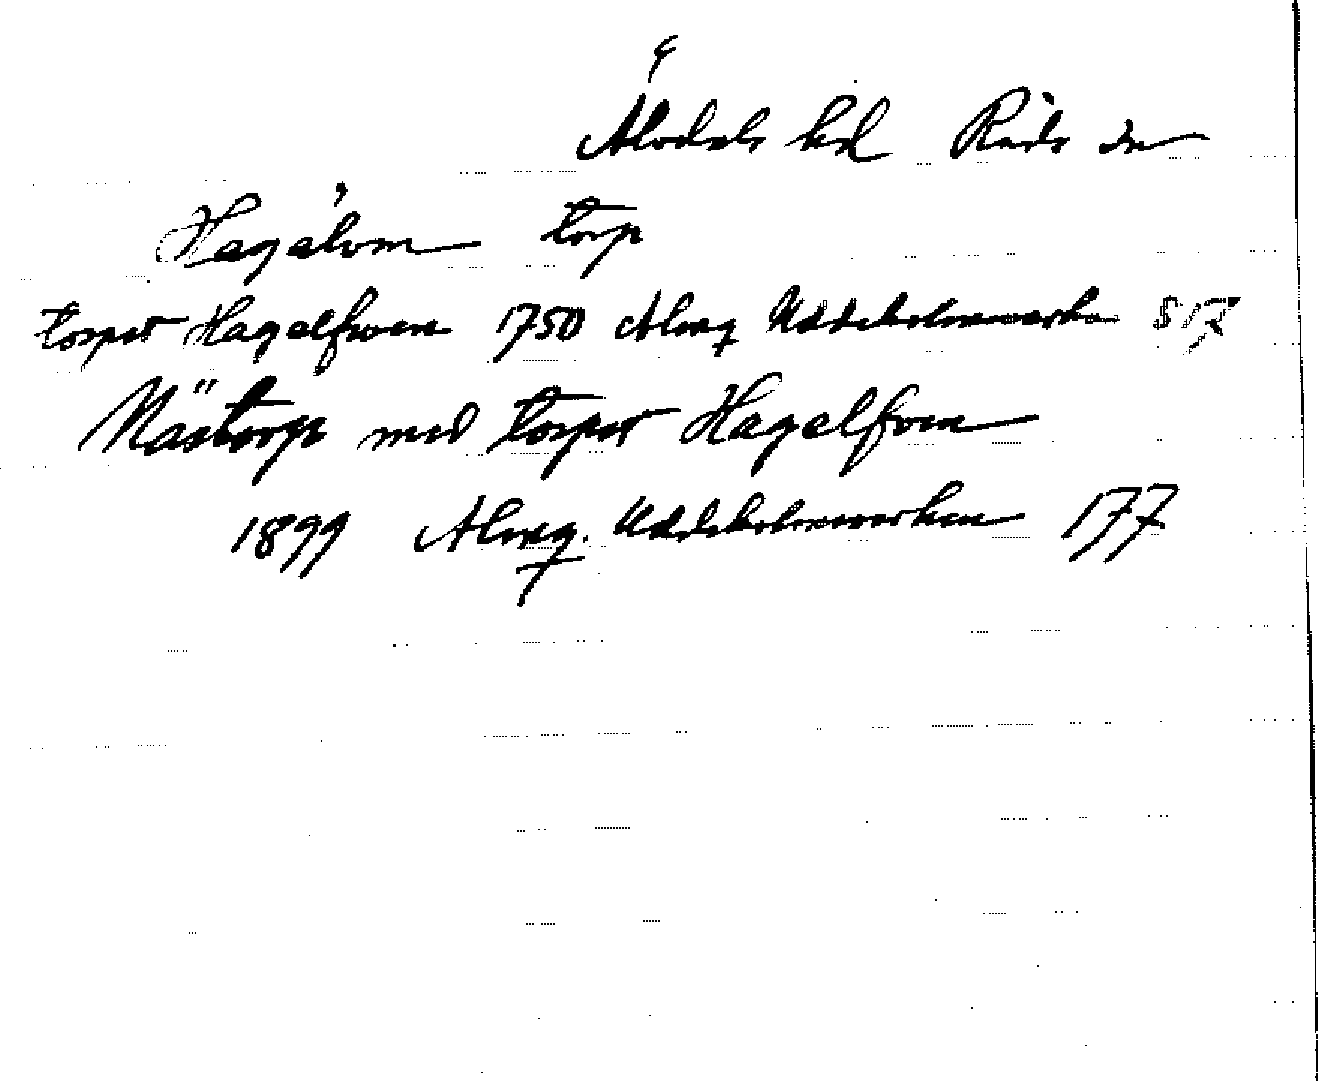 Älvdals hd Råda sn
Hagälven torp
torpet Hagelfwen 1750 Almq Uddeholmswerken S 17
Mastorp med torpet Hagelfven
1899 Almq. Uddeholmsverken 177